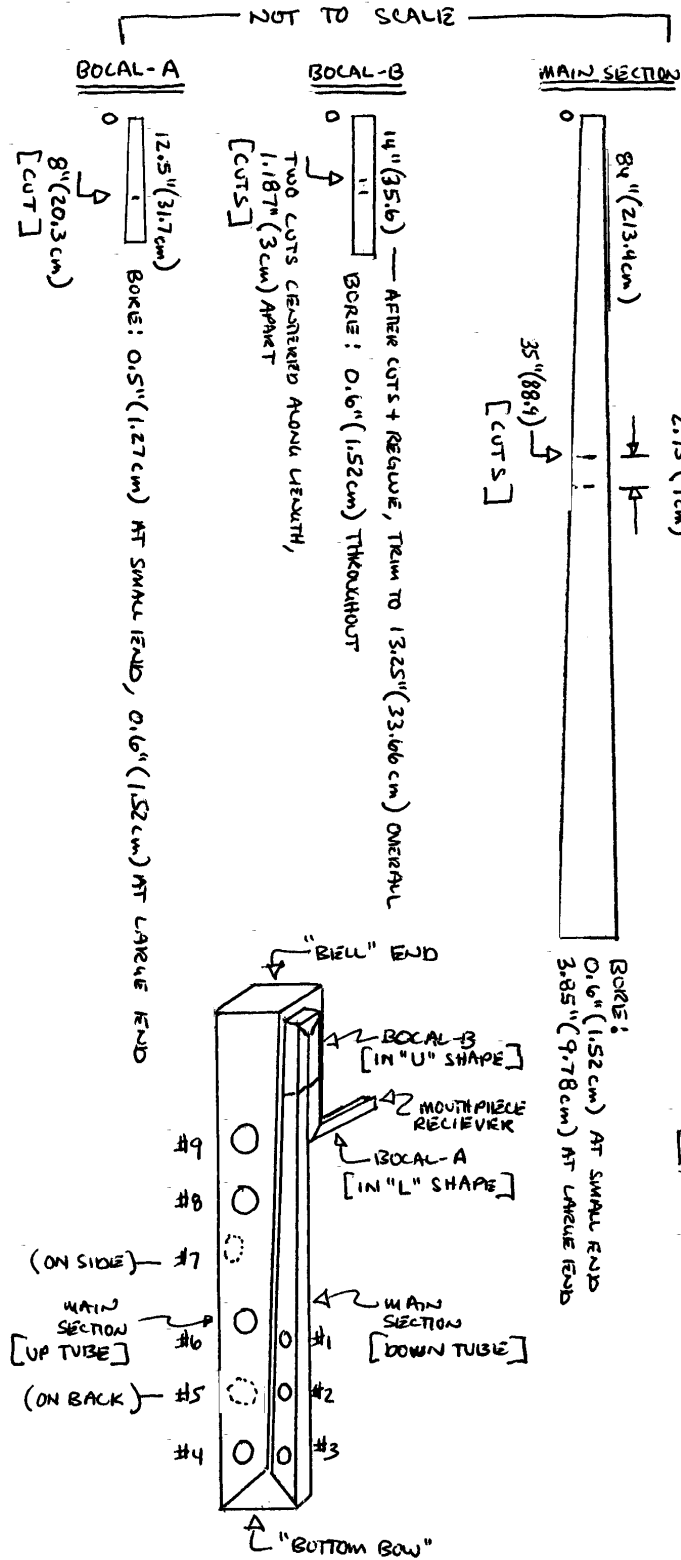 NOT TO SCALE
BOCAL-A
0
12.5"(31.7cm)
8"(20.3cm)
[CUT]
BORE: 0.5"(1.27cm) AT SMALL END, 0.6"(1.52cm) AT LARGE END
BOCAL-B
0
14"(35.6) — AFTER CUTS + REGLUE, TRIM TO 13.25"(33.66cm) OVERALL
BORE: 0.6"(1.52cm) THROUGHOUT
TWO CUTS CENTERED ALONG LENGTH,
1.187"(3cm) APART
[CUTS]
MAIN SECTION
0
84"(213.4cm)
35"(88.9)
[CUTS]
BORE:
0.6"(1.52cm) AT SMALL END
3.85"(9.78cm) AT LARGE END
"BELL" END
BOCAL-B
[IN "U" SHAPE]
MOUTHPIECE
RECIEVER
BOCAL-A
[IN "L" SHAPE]
#9
#8
(ON SIDE) #7
MAIN
SECTION
[UP TUBE]
#6
(ON BACK) #5
#4
MAIN
SECTION
[DOWN TUBE]
#1
#2
#3
"BOTTOM BOW"